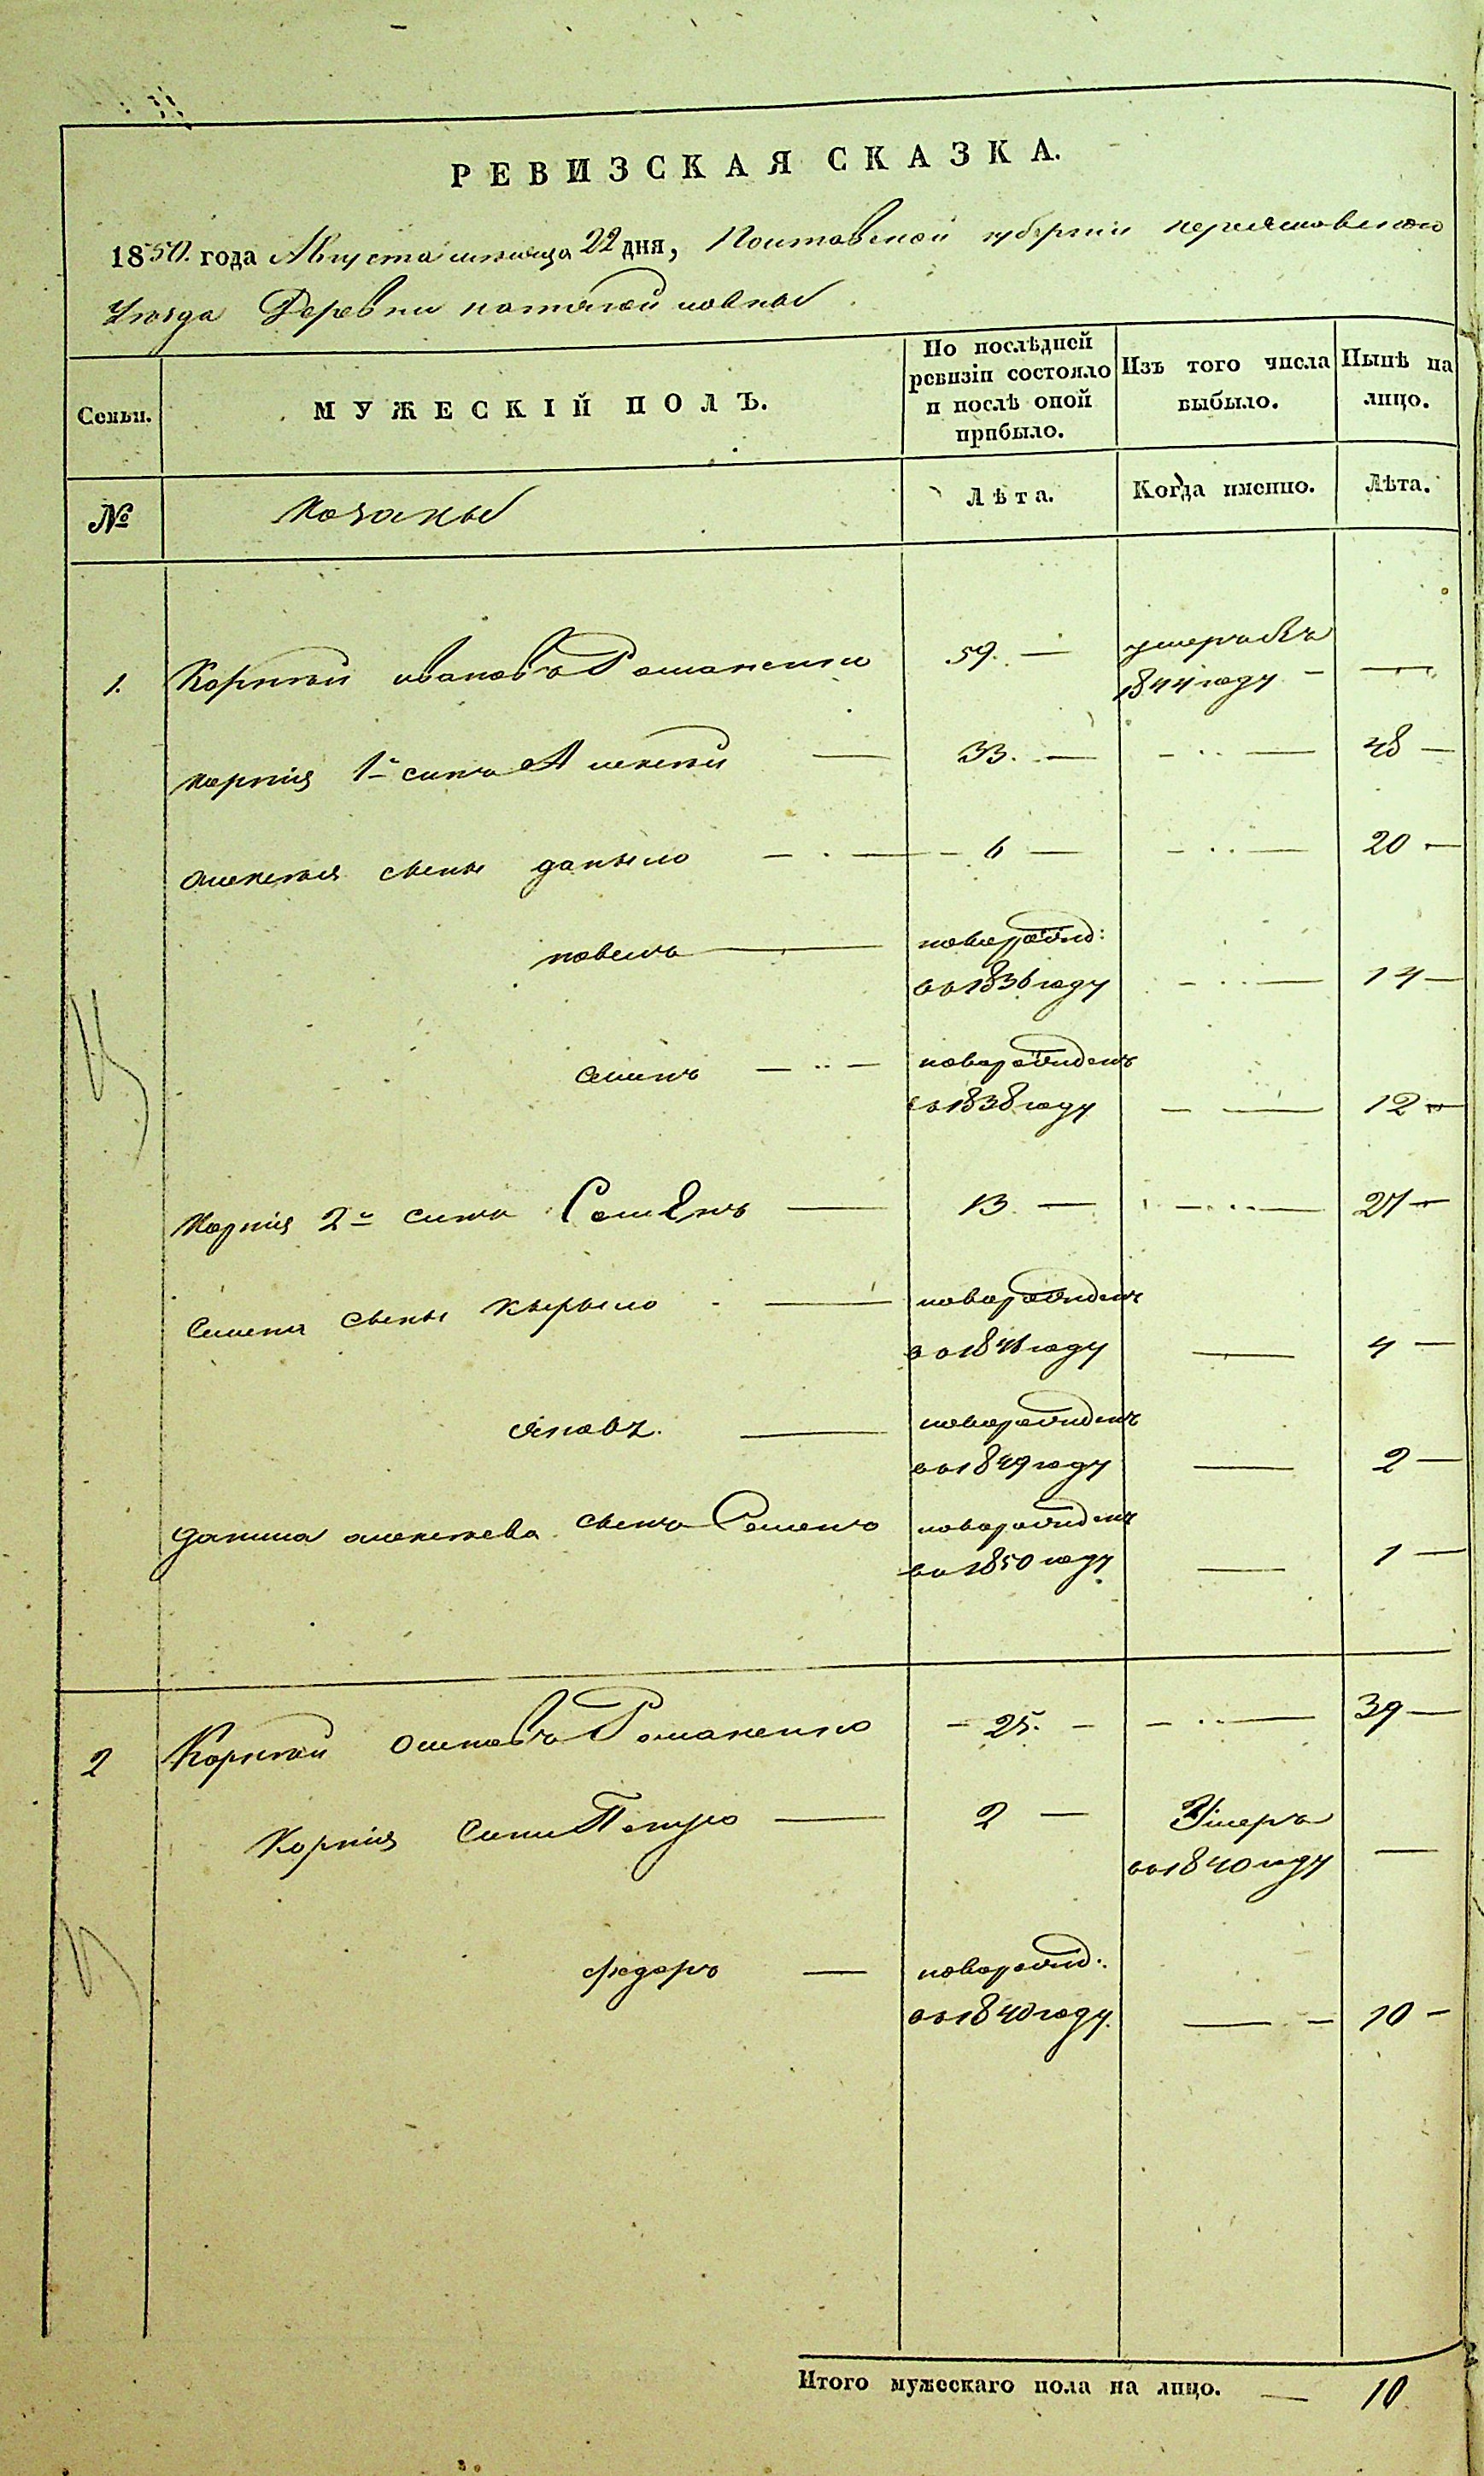 РЕВИЗСКАЯ СКАЗКА.
1850. года Августа месяца 22 дня, Полтавской губернии переяславского
Уезда Деревни
Семьи. МУЖЕСКІЙ ПОЛЪ. По послѣдней ревизіи состояло и послѣ оной прибыло. Изъ того числа выбыло. Нынѣ на лицо.
№ Козаки Лѣта. Когда именно. Лѣта.
1. Корнѣй ивановъ Романенко 59. — умеръ въ
1844 году — —
корнія 1й синъ Алексей — 33. — — 48 —
алексея сыны даныло — 6 — — 20 —
павелъ — новорожд:
во 1836 году — 14 —
семенъ — новорожденъ
во 1838 году — 12 —
Корнія 2й синъ Семенъ — 13 — — 27 —
Семена сыны Кырыло — новорожденъ
во 1846 году — 4 —
яковъ. — новорожденъ
во 1849 году — 2 —
данила алексеева сынъ Семенъ новорожденъ
во 1850 году — 1 —
2 Корнѣй Романенко — 25. — — 39 —
Корнія сини Петро — 2 — Умеръ
во 1840 году —
федоръ — новорожд:
во 1840 году. — 10 —
Итого мужескаго пола на лицо. — 10